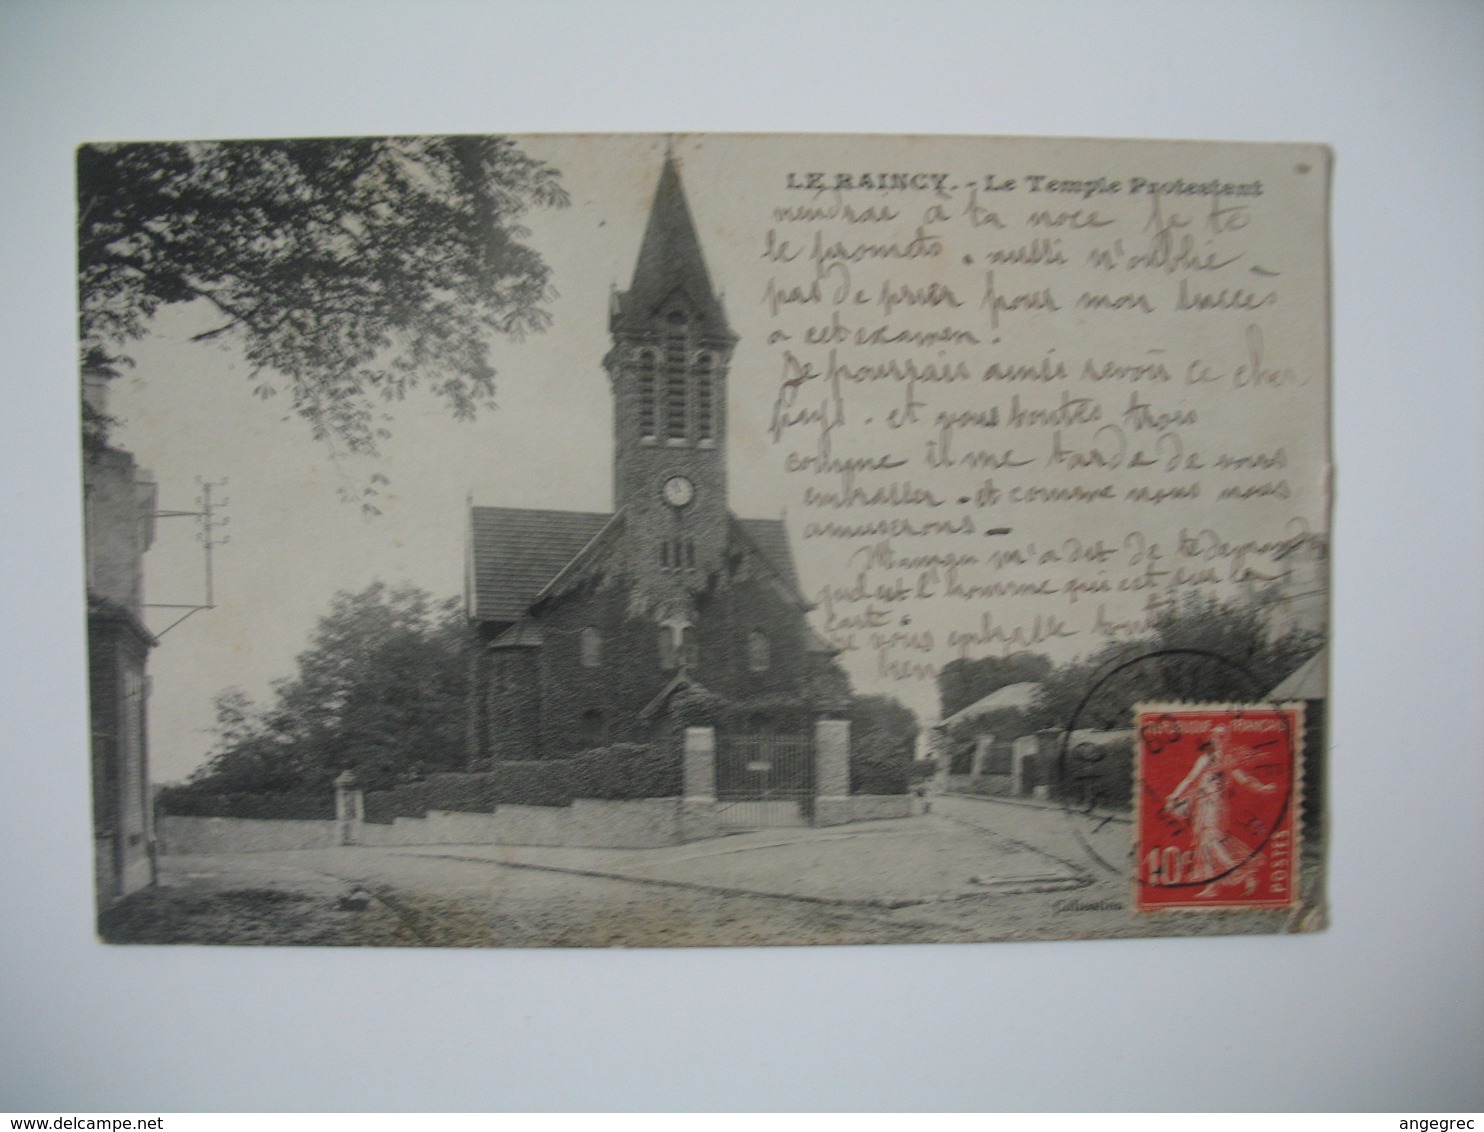 LE RAINCY. - Le Temple Protestant
à ta noce Je te
le promets. n'oublie
pas de prier pour mon succes
a cet examen!
Je pourrais ainsi revoir ce cher
pays. et vous toutes trois
comme il me tarde de vous
embrasser. et comme nous nous
amuserons -
m'a dit de te demander
quel est l'homme qui est sur la
carte.
Je vous embrasse tout
bien
Collection
REPUBLIQUE FRANÇAISE
10c
POSTES
delcampe.net
angegrec